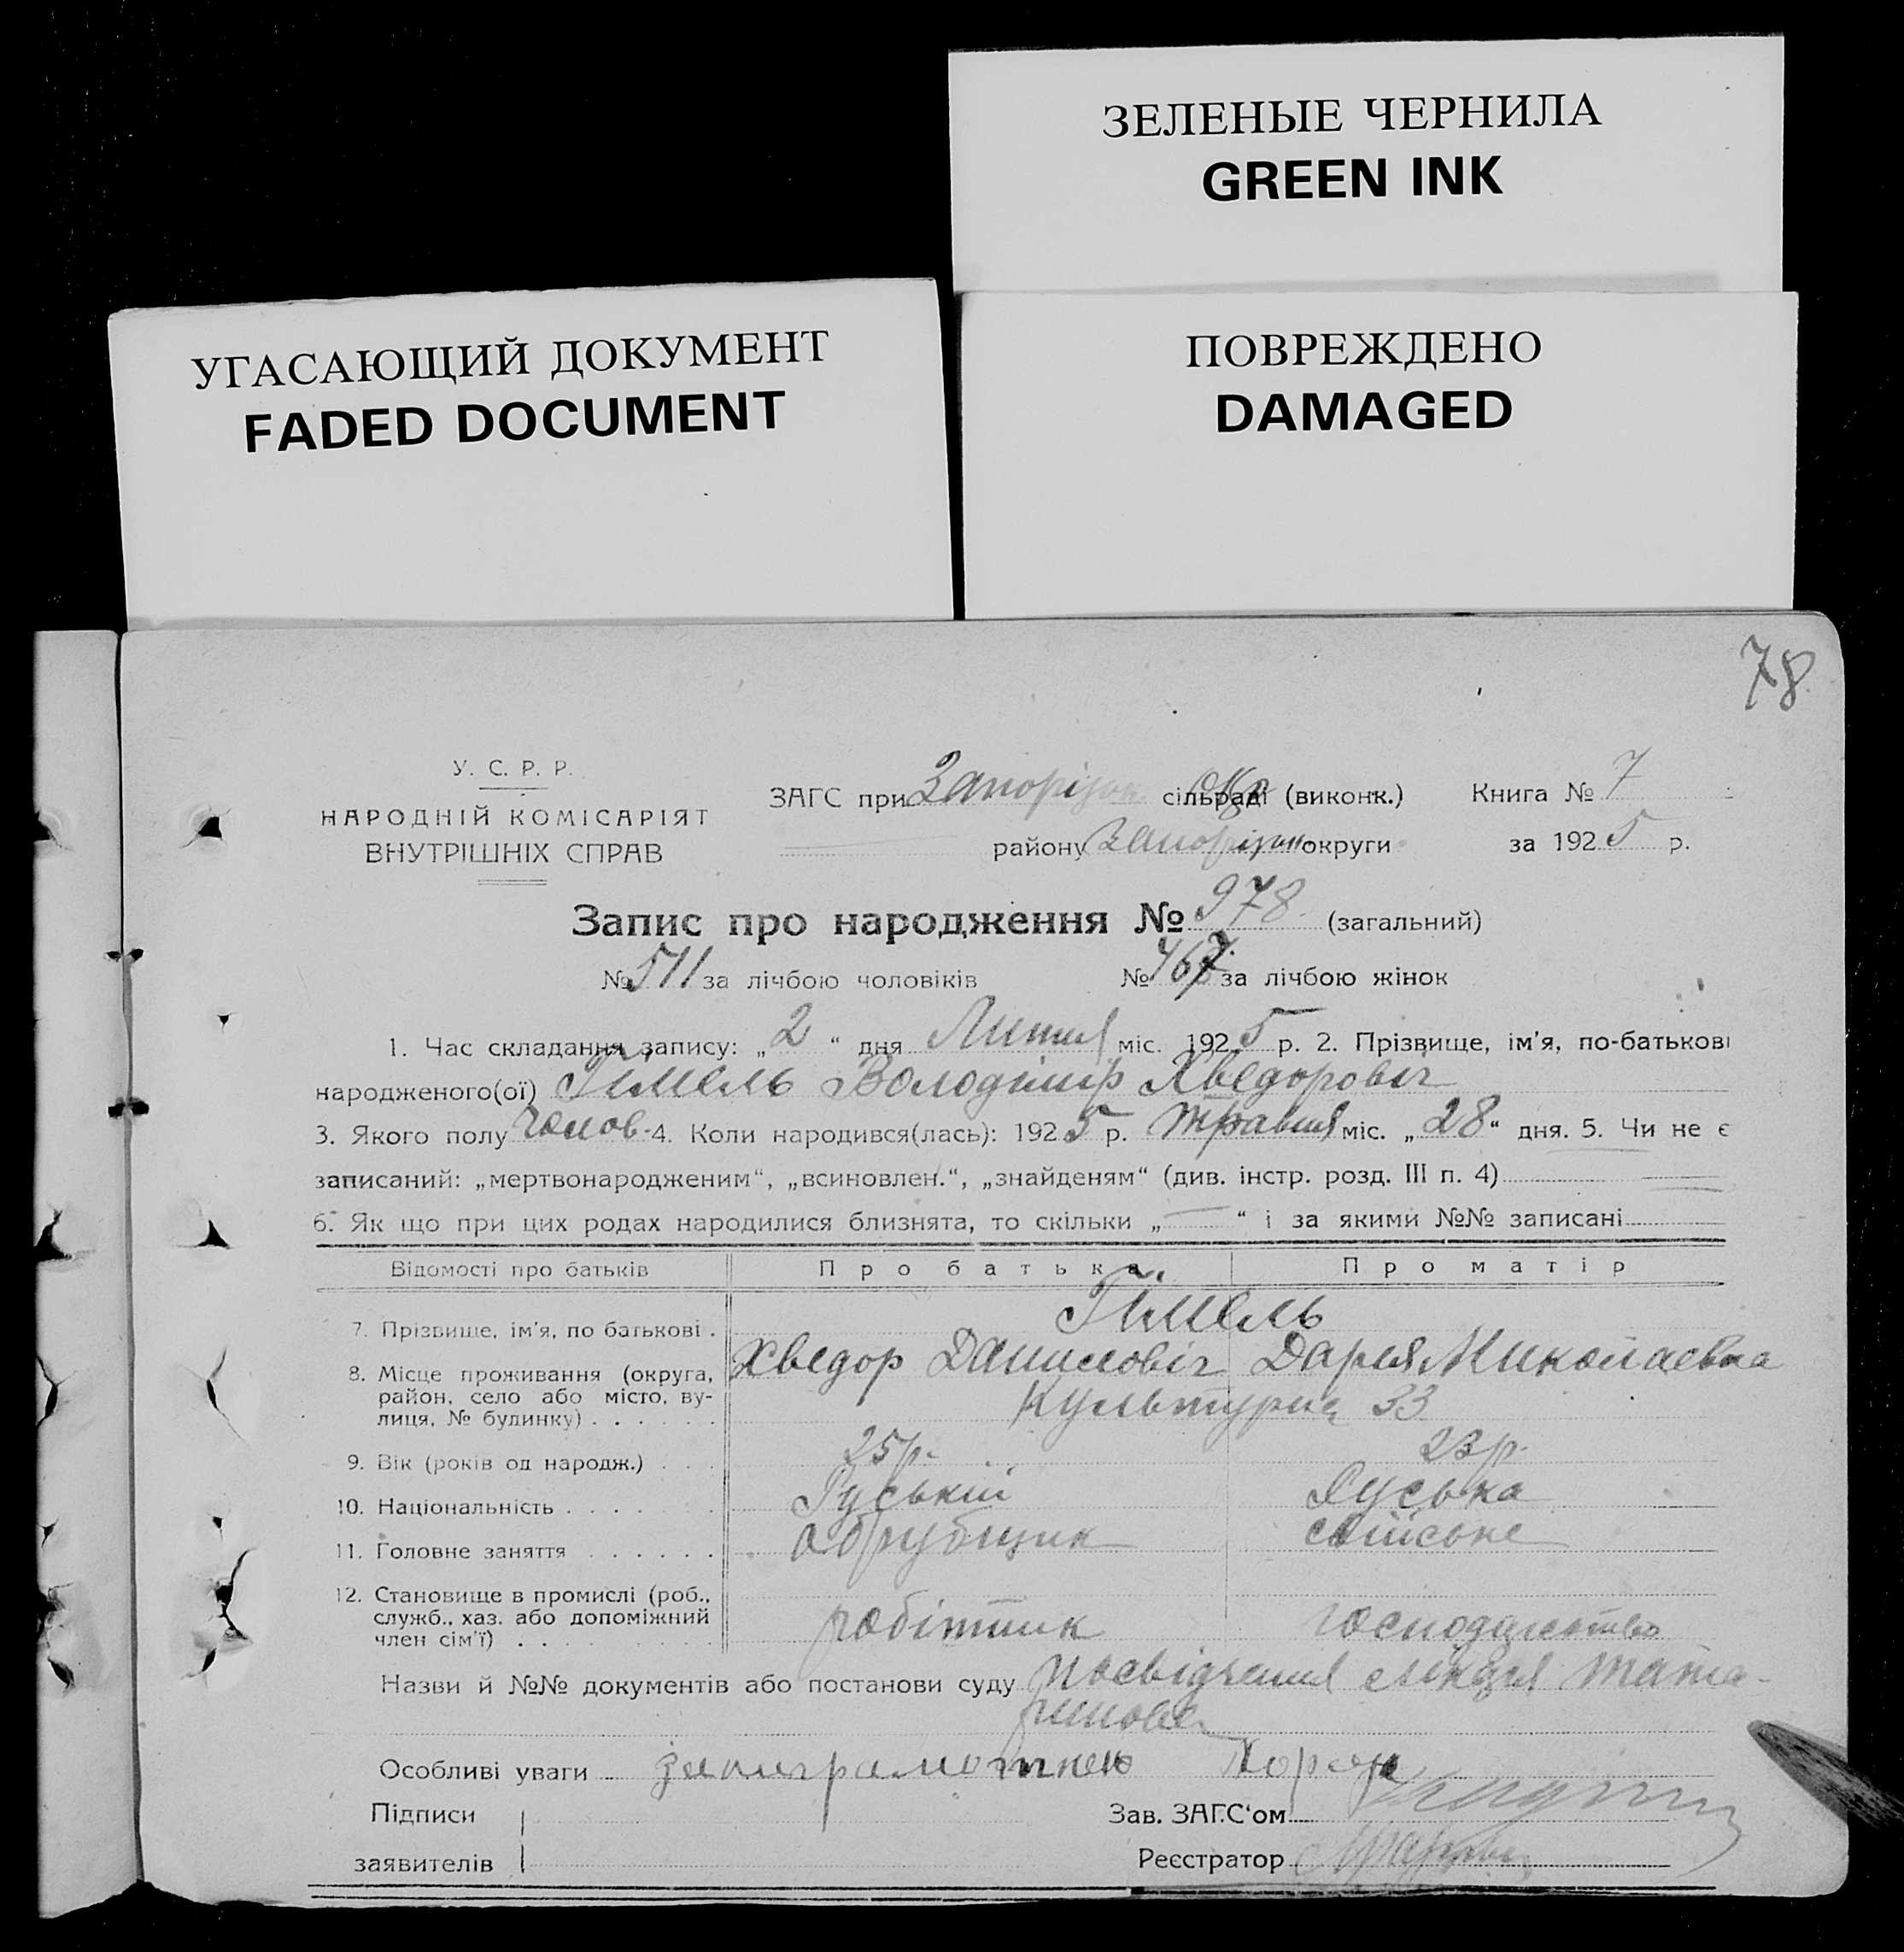 ЗЕЛЕНЫЕ ЧЕРНИЛА
GREEN INK
УГАСАЮЩИЙ ДОКУМЕНТ
FADED DOCUMENT
ПОВРЕЖДЕНО
DAMAGED
78
У. С. Р. Р.
НАРОДНІЙ КОМІСАРІЯТ
ВНУТРІШНІХ СПРАВ
ЗАГС при Запорізьк сільраді окр (виконк.) Книга № 7
району Запорізьк округи за 1925 р.
Запис про народження № 978 (загальний)
№ 511 за лічбою чоловіків № 467 за лічбою жінок
1. Час складання запису: „2“ дня Липня міс. 1925 р. 2. Прізвище, ім'я, по-батькові
народженого(ої) Гімель Володімір Хведоровіч
3. Якого полу чолов. 4. Коли народився(лась): 1925 р. Травня міс. „28“ дня. 5. Чи не є
записаний: „мертвонародженим“, „всиновлен.“, „знайденям“ (див. інстр. розд. III п. 4)
6. Як що при цих родах народилися близнята, то скільки „—“ і за якими №№ записані
Відомості про батьків Про батька Про матір
7. Прізвище, ім'я, по батькові . Гімель
Хведор Данилович Дарья Миколаевна
8. Місце проживання (округа, район, село або місто, вулиця, № будинку) . . . . . . Культурна 33
9. Вік (років од народж.) . . . 25 р. 23 р.
10. Національність . . . . Руській Руська
11. Головне заняття . . . . . . обрубщик сатське
12. Становище в промислі (роб., служб., хаз. або допоміжний член сім'ї) . . робітник господарство
Назви й №№ документів або постанови суду Посвідчення
Особливі уваги
Підписи
Зав. ЗАГС'ом
заявителів
Реєстратор